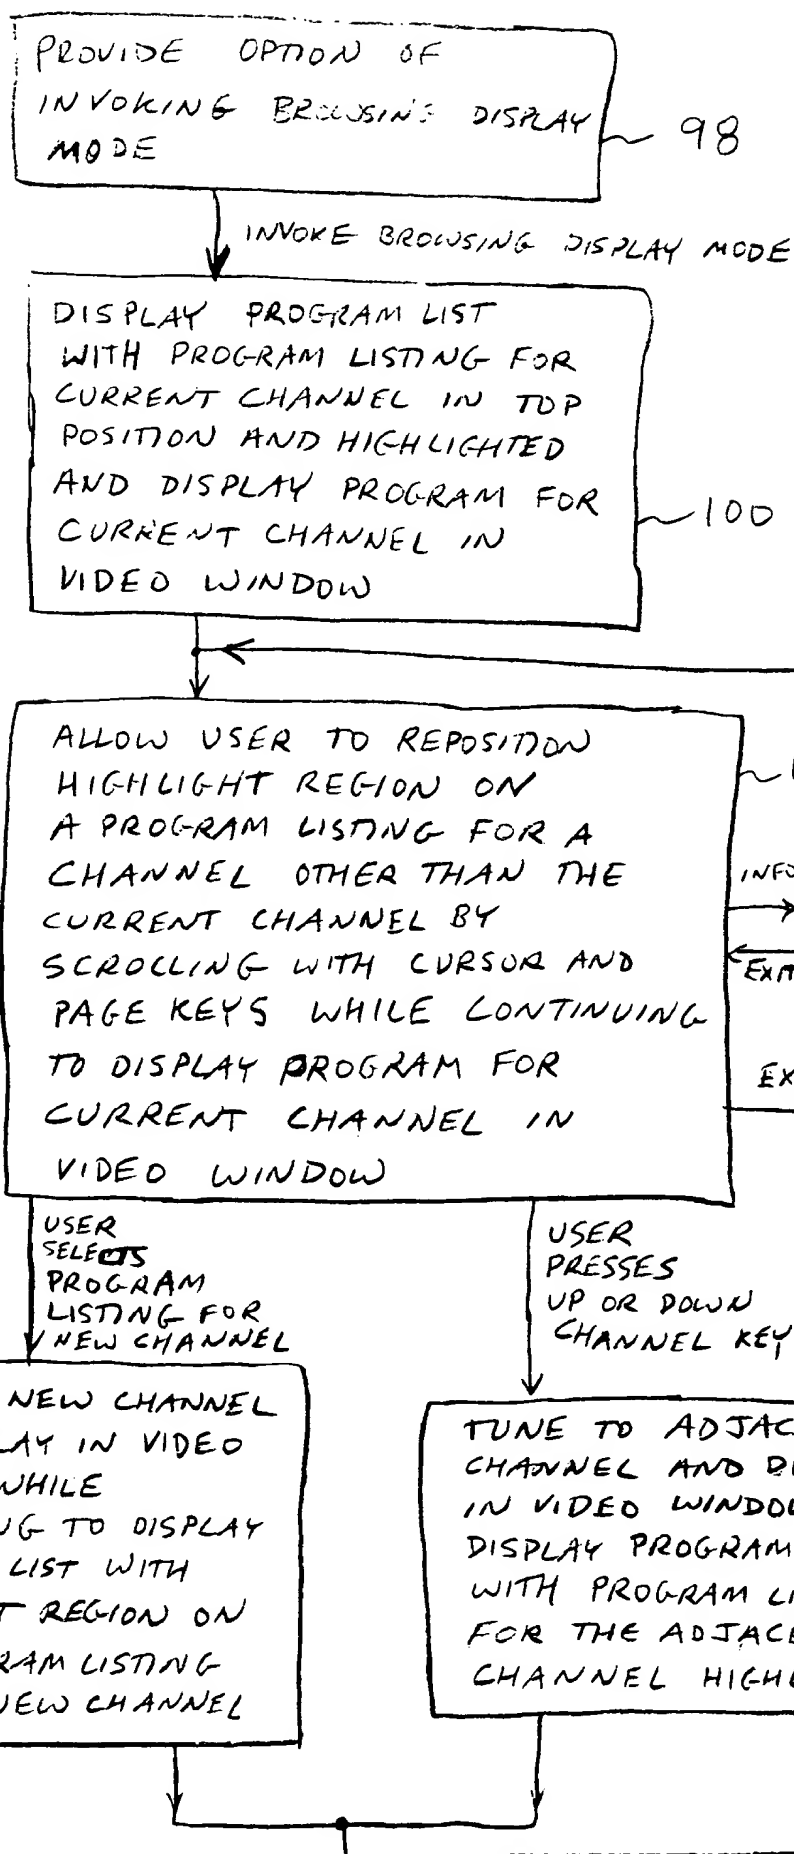 PROVIDE OPTION OF
INVOKING BROWSING DISPLAY
MODE
98
INVOKE BROWSING DISPLAY MODE
DISPLAY PROGRAM LIST
WITH PROGRAM LISTING FOR
CURRENT CHANNEL IN TOP
POSITION AND HIGHLIGHTED
AND DISPLAY PROGRAM FOR
CURRENT CHANNEL IN
VIDEO WINDOW
100
ALLOW USER TO REPOSITION
HIGHLIGHT REGION ON
A PROGRAM LISTING FOR A
CHANNEL OTHER THAN THE
CURRENT CHANNEL BY
SCROLLING WITH CURSOR AND
PAGE KEYS WHILE CONTINUING
TO DISPLAY PROGRAM FOR
CURRENT CHANNEL IN
VIDEO WINDOW
INFO
EXIT
EX
USER
SELECTS
PROGRAM
LISTING FOR
NEW CHANNEL
USER
PRESSES
UP OR DOWN
CHANNEL KEY
NEW CHANNEL
LAY IN VIDEO
WHILE
NG TO DISPLAY
LIST WITH
T REGION ON
RAM LISTING
NEW CHANNEL
TUNE TO ADJAC
CHANNEL AND D
IN VIDEO WINDO
DISPLAY PROGRAM
WITH PROGRAM LI
FOR THE ADJACE
CHANNEL HIGHL